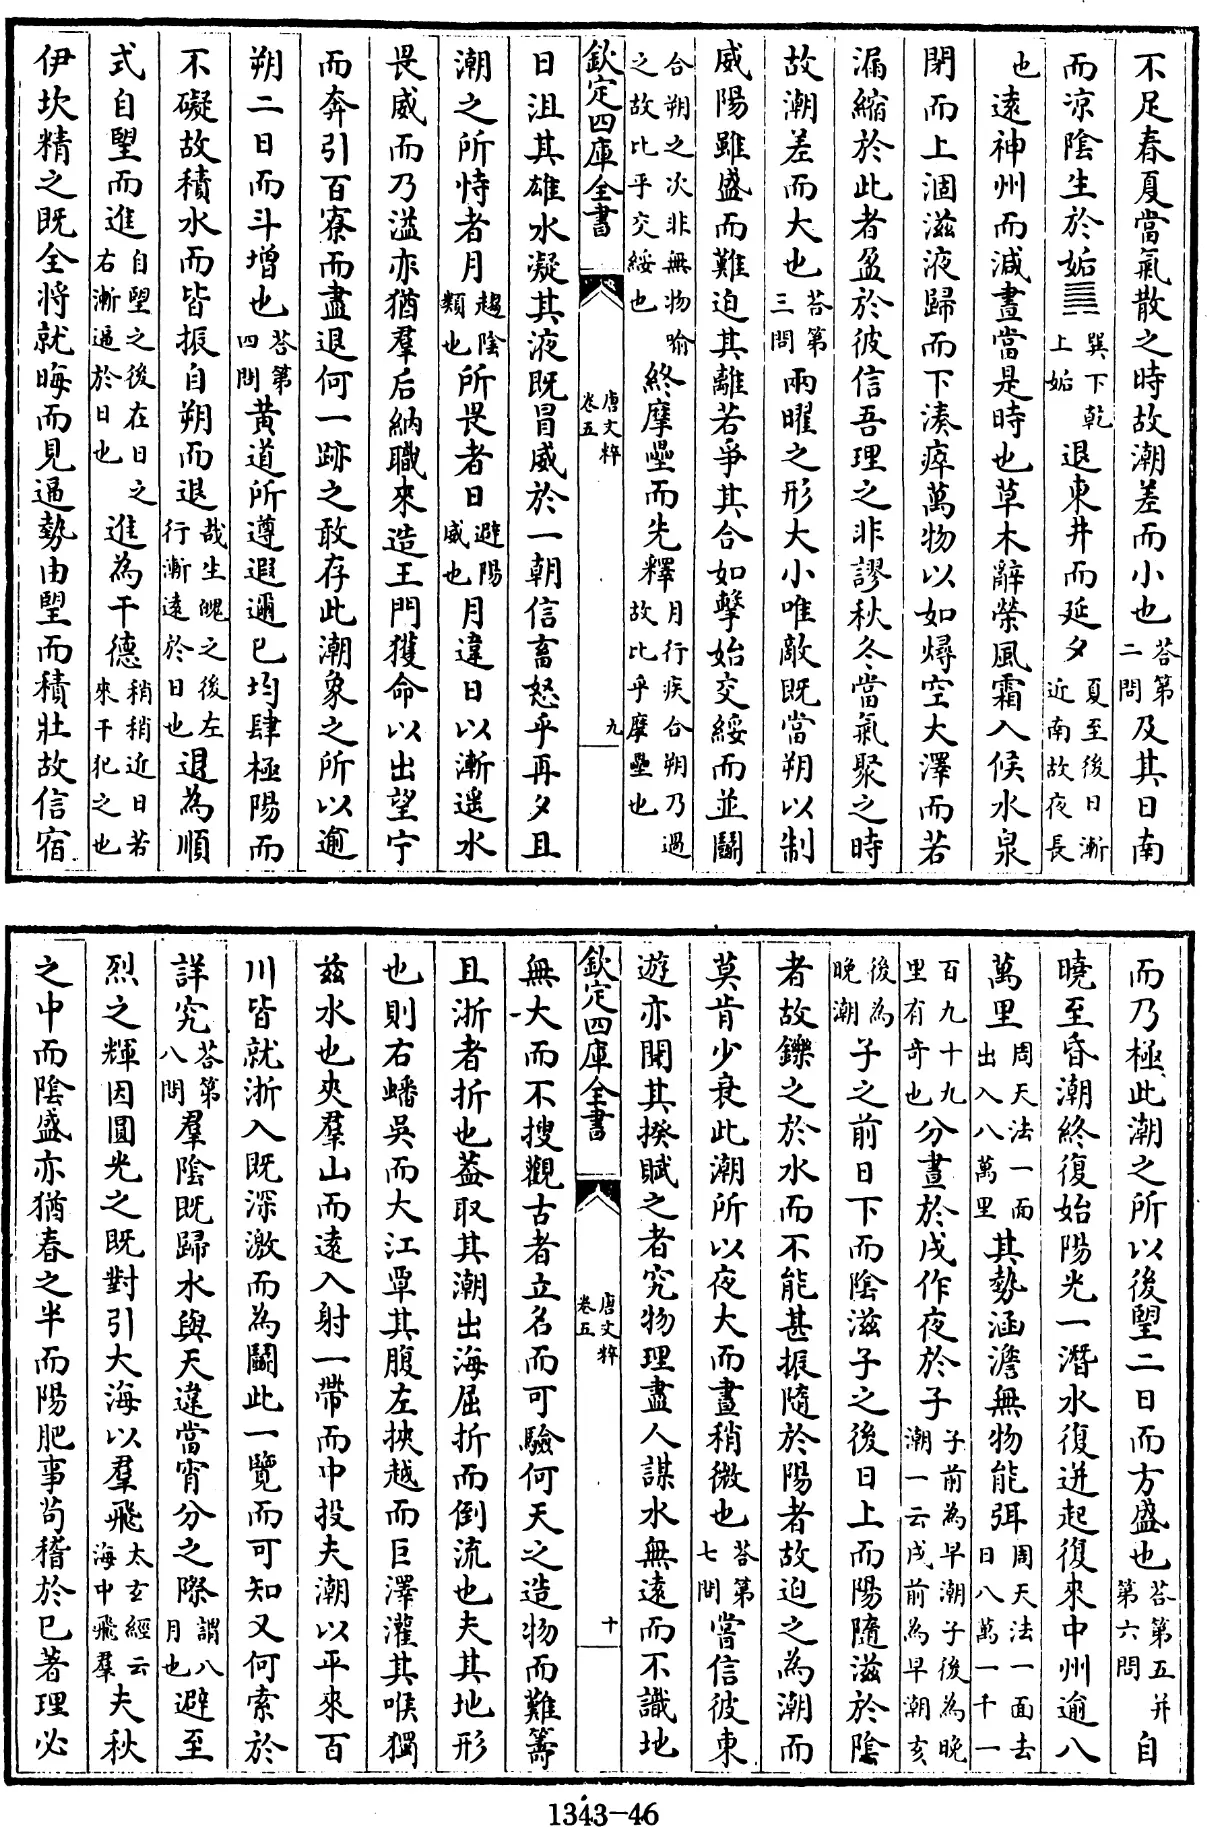 不足春夏當氣散之時故潮差而小也答第二問及其日南
而凉陰生於姤䷫巽下乾上姤退東井而延夕夏至後日漸近南故夜長
也遠神州而減晝當是時也草木辭榮風霜入候水泉
閉而上涸滋液歸而下湊瘁萬物以如燖空大澤而若
漏縮於此者盈於彼信吾理之非謬秋冬當氣聚之時
故潮差而大也答第三問兩曜之形大小唯敵既當朔以制
威陽雖盛而難迫其離若爭其合如擊始交綏而並鬭
合朔之次非無物喻之故比乎交綏也終摩壘而先釋月行疾合朔乃過故比乎摩壘也
欽定四庫全書 唐文粹卷五 九
日沮其雄水凝其液既冒威於一朝信畜怒乎再夕且
潮之所恃者月趨陰類也所畏者日避陽威也月違日以漸遥水
畏威而乃溢亦猶羣后納職來造王門獲命以出望宁
而奔引百寮而盡退何一跡之敢存此潮象之所以逾
朔二日而斗增也答第四問黄道所遵遐邇已均肆極陽而
不礙故積水而皆振自朔而退哉生魄之後左行漸遠於日也退為順
式自朢而進自朢之後在日之右漸逼於日也進為干德稍稍近日若來干犯之也
伊坎精之既全将就晦而見逼勢由朢而積壯故信宿
而乃極此潮之所以後朢二日而方盛也答第五并第六問自
曉至昏潮終復始陽光一潛水復迸起復來中州逾八
萬里周天法一面出入八萬里其勢涵澹無物能弭周天法一面去日八萬一千一
百九十九里有奇也分晝於戌作夜於子子前為早潮子後為晚潮一云戌前為早潮亥
後為晚潮子之前日下而陰滋子之後日上而陽隨滋於陰
者故鑠之於水而不能甚振隨於陽者故迫之為潮而
莫肯少衰此潮所以夜大而晝稍微也答第七問嘗信彼東
遊亦聞其揆賦之者究物理盡人謀水無遠而不識地
欽定四庫全書 唐文粹卷五 十
無大而不搜觀古者立名而可驗何天之造物而難籌
且浙者折也葢取其潮出海屈折而倒流也夫其地形
也則右蟠吳而大江覃其腹左挾越而巨澤灌其喉獨
兹水也夾羣山而遠入射一帶而中投夫潮以平來百
川皆就浙入既深激而為鬭此一覽而可知又何索於
詳究答第八問羣陰既歸水與天違當宵分之際謂八月也避至
烈之輝因圓光之既對引大海以羣飛太玄經云海中飛羣夫秋
之中而陰盛亦猶春之半而陽肥事茍稽於已著理必
1343-46